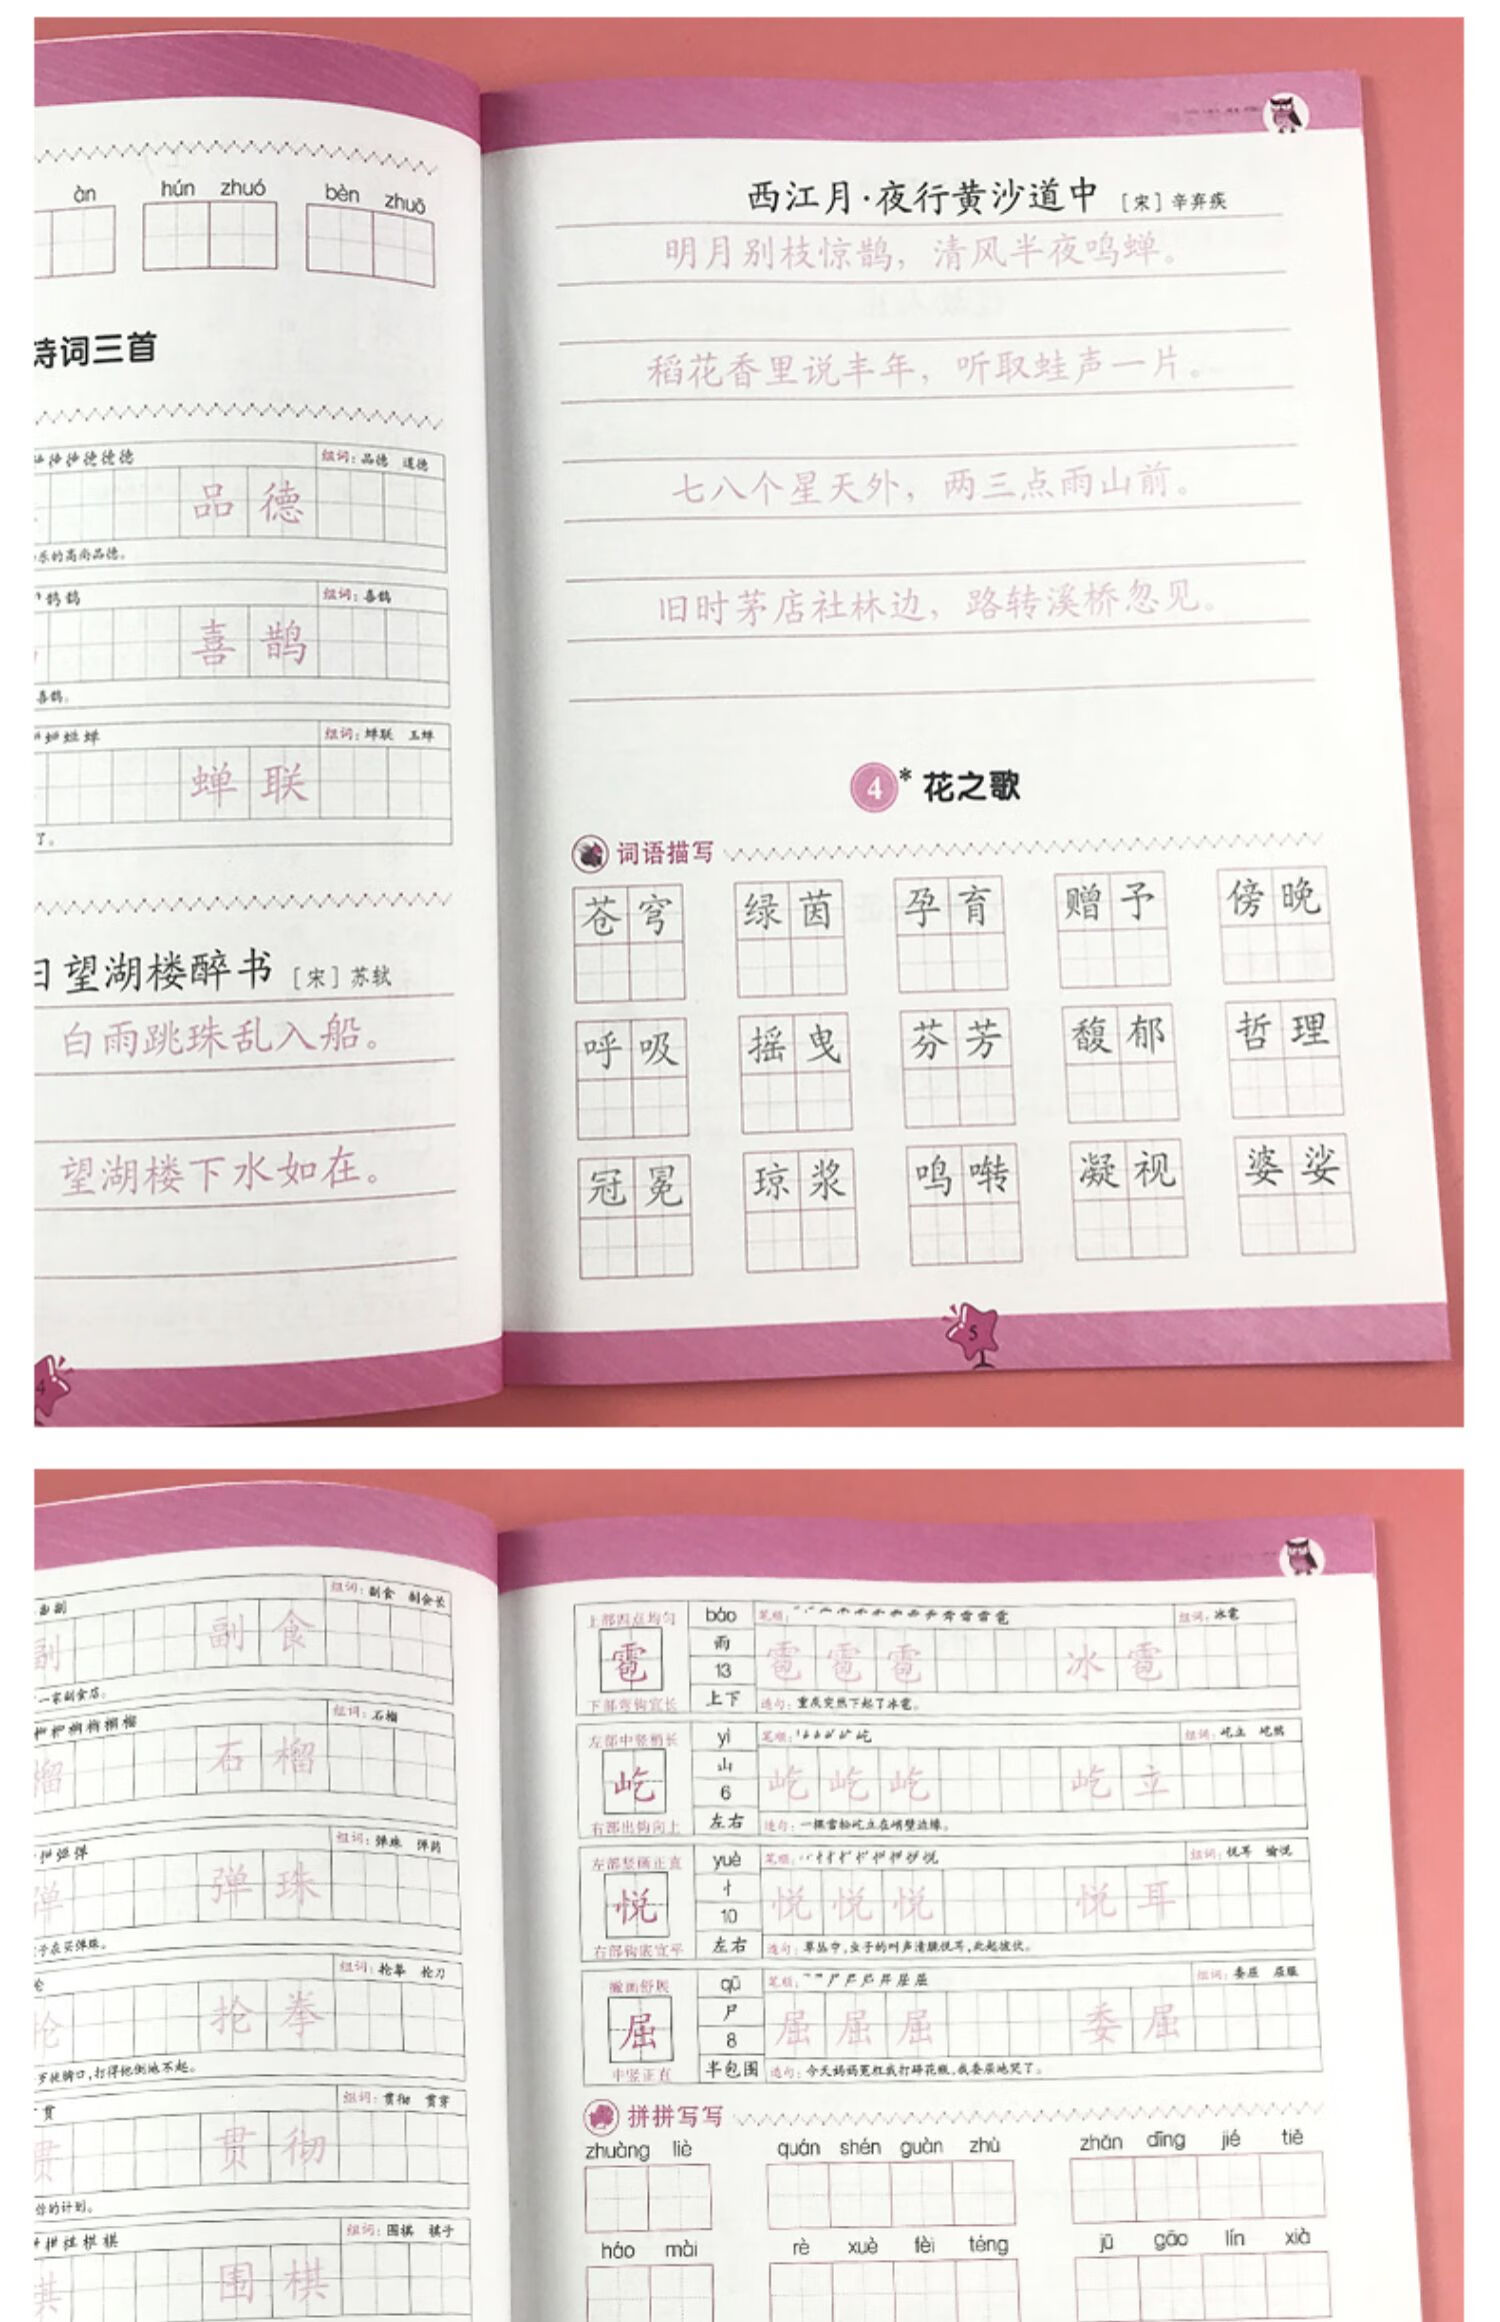 àn hún zhuó bèn zhuō
诗词三首
组词：品德 道德
品德
乐的高尚品德。
组词：喜鹊
喜鹊
喜鹊。
组词：蝉联 玉蝉
蝉联
了。
日望湖楼醉书 ［宋］苏轼
白雨跳珠乱入船。
望湖楼下水如在。
4
西江月·夜行黄沙道中 ［宋］辛弃疾
明月别枝惊鹊，清风半夜鸣蝉。
稻花香里说丰年，听取蛙声一片。
七八个星天外，两三点雨山前。
旧时茅店社林边，路转溪桥忽见。
4 * 花之歌
词语描写
苍穹 绿茵 孕育 赠予 傍晚
呼吸 摇曳 芬芳 馥郁 哲理
冠冕 琼浆 鸣啭 凝视 婆娑
5
组词：副食 副会长
副 副食
一家副食店。
组词：石榴
榴 石榴
组词：弹珠 弹药
弹 弹珠
子在买弹珠。
组词：抡拳 抡刀
抡 抡拳
歹徒胸口，打得他倒地不起。
组词：贯彻 贯穿
贯 贯彻
你的计划。
组词：围棋 棋子
棋 围棋
上部四点均匀 báo 笔顺： 组词：冰雹
雹 雨 13 雹 雹 雹 冰雹
下部弯钩宜长 上下 造句：重庆突然下起了冰雹。
左部中竖稍长 yì 笔顺： 组词：屹立 屹然
屹 山 6 屹 屹 屹 屹立
右部出钩向上 左右 造句：一棵雪松屹立在峭壁边缘。
左部竖画正直 yuè 笔顺： 组词：悦耳 愉悦
悦 忄 10 悦 悦 悦 悦耳
右部钩底宜平 左右 造句：草丛中，虫子的叫声清脆悦耳，此起彼伏。
撇画舒展 qū 笔顺： 组词：委屈 屈服
屈 尸 8 屈 屈 屈 委屈
中竖正直 半包围 造句：今天妈妈冤枉我打碎花瓶，我委屈地哭了。
拼拼写写
zhuàng liè quán shén guàn zhù zhǎn dīng jié tiě
háo mài rè xuè fèi téng jū gāo lín xià